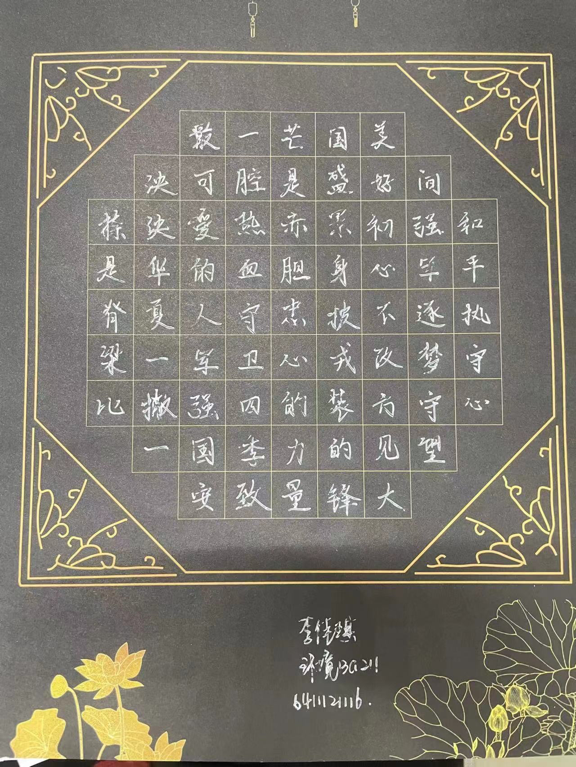 和平执守心
间强军逐梦守望
美好初心不改方见大
国盛景身披戎装的锋
芒是赤胆忠心的力量
一腔热血守卫四季致
敬可爱的人军强国安
泱泱华夏一撇一
捺是脊梁
641121116.